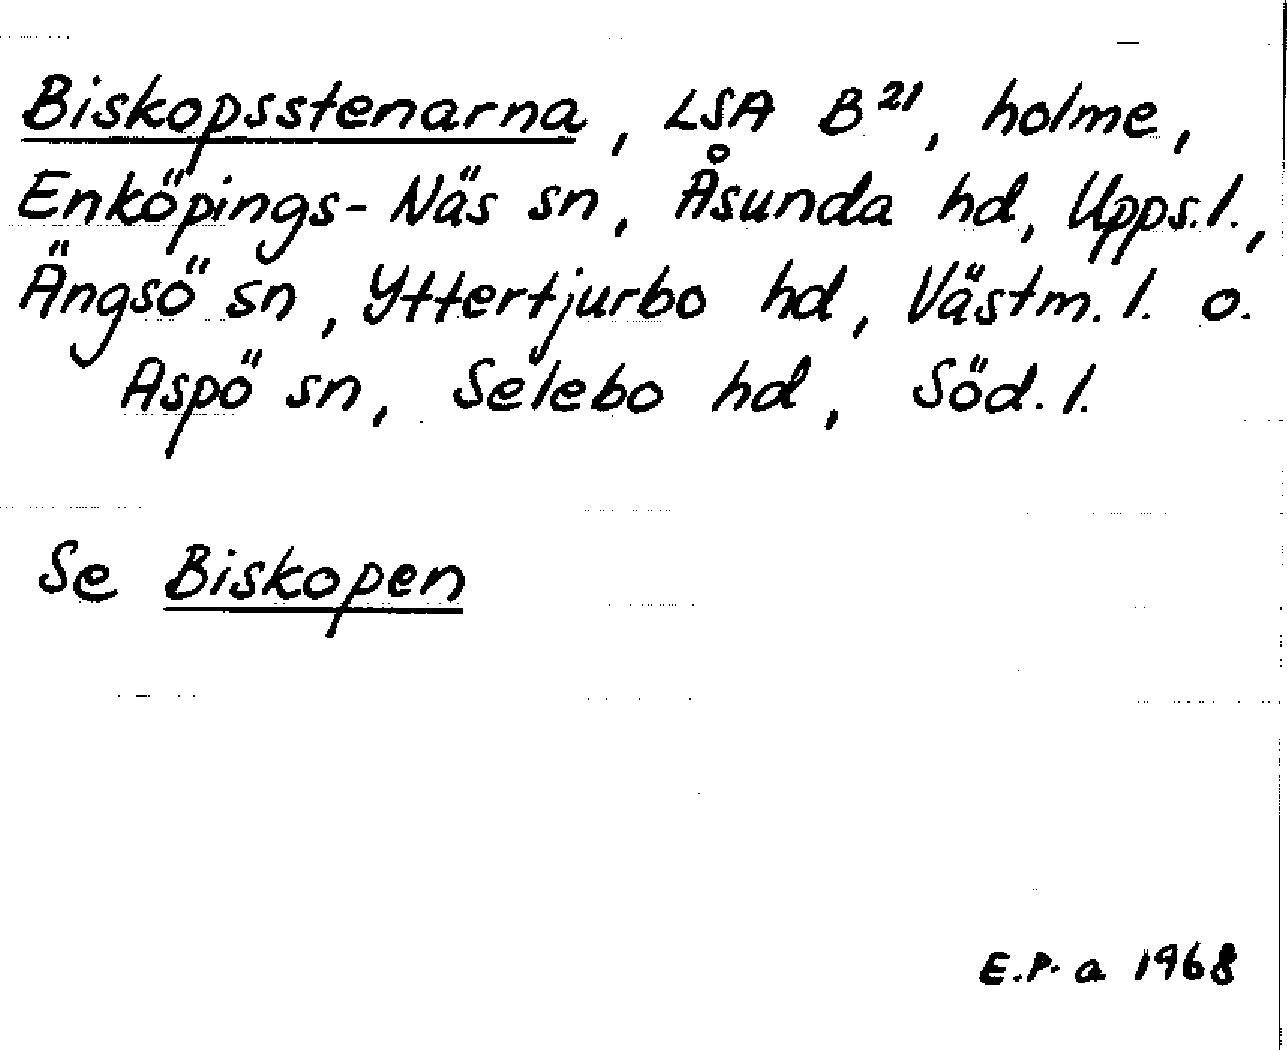 Biskopsstenarna, LSA B²¹, holme,
Enköpings-Näs sn, Åsunda hd, Upps.l.,
Ängsö sn, Yttertjurbo hd, Västm.l. o.
Aspö sn, Selebo hd, Söd.l.
Se Biskopen
E.P. a 1968